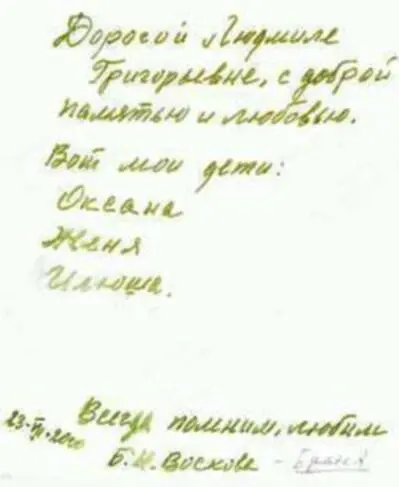 Дорогой Людмиле
Григорьевне, с доброй
памятью и любовью.
Вот мои дети:
Оксана
Женя
Илюша.
Всегда помним, любим
Б.Н. Воскова -